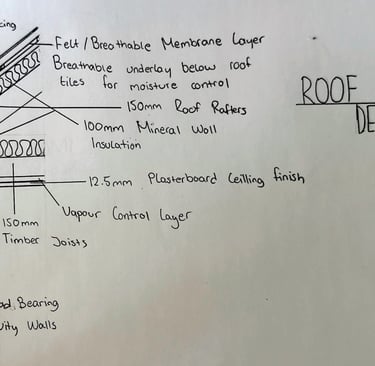 cing
Felt / Breathable Membrane Layer
Breathable underlay below roof
tiles for moisture control
150mm Roof Rafters
100mm Mineral Woll
Insulation
12.5mm Plasterboard Ceilling finish
Vapour Control Layer
150mm
Timber Joists
ad Bearing
vity Walls
ROOF
DE